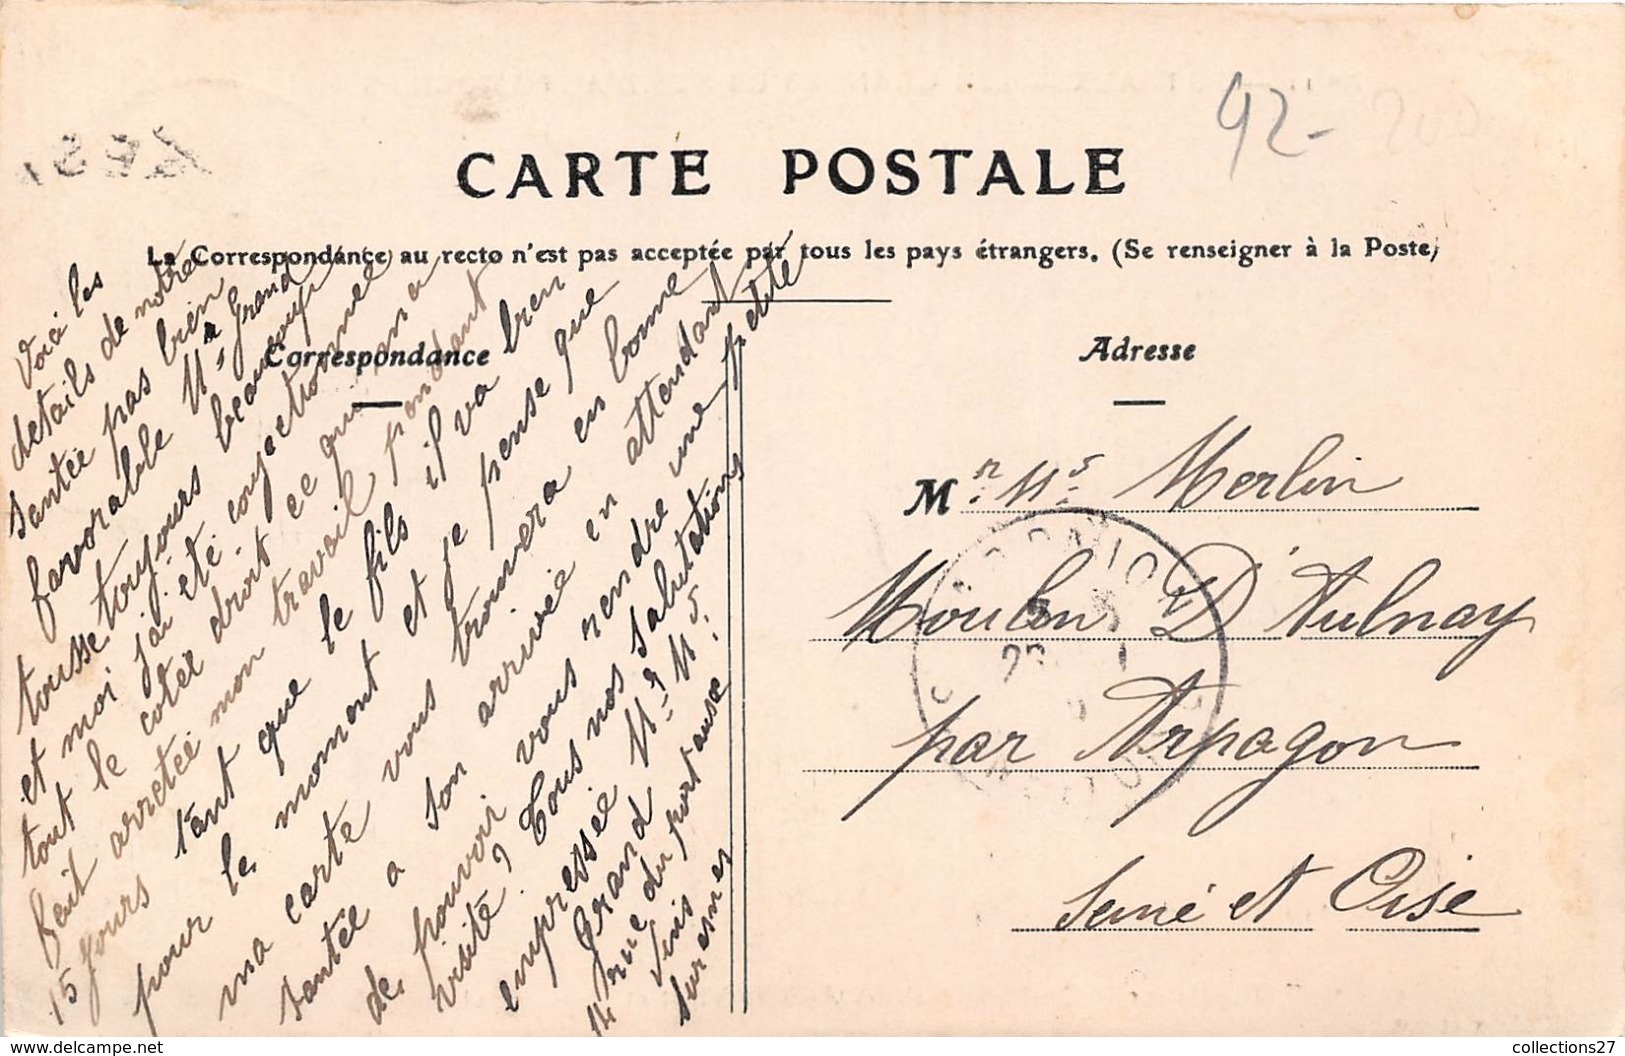 92-
CARTE POSTALE
La Correspondance au recto n'est pas acceptée par tous les pays étrangers. (Se renseigner à la Poste)
Correspondance
Voici les
details de notre
santée pas bien
favorable Mme Grand
tousse toujours beaucoup
et moi j'ai été conjectionnée
tout le cotée droit ce qui m'a
fait arretée mon travail pendant
15 jours tant que le fils il va bien
pour le moment et je pense que
ma carte vous trouvera en bonne
santée a son arrivée en attendant
de pouvoir vous rendre une petite
visite, Tous nos salutations
empressée Mr Ms
Grand
4 rue du port aux
Vins
Suresnes
Adresse
Mr Ms Merlin
Moulin D'Aulnay
par Arpagon
Seine et Oise
collections27